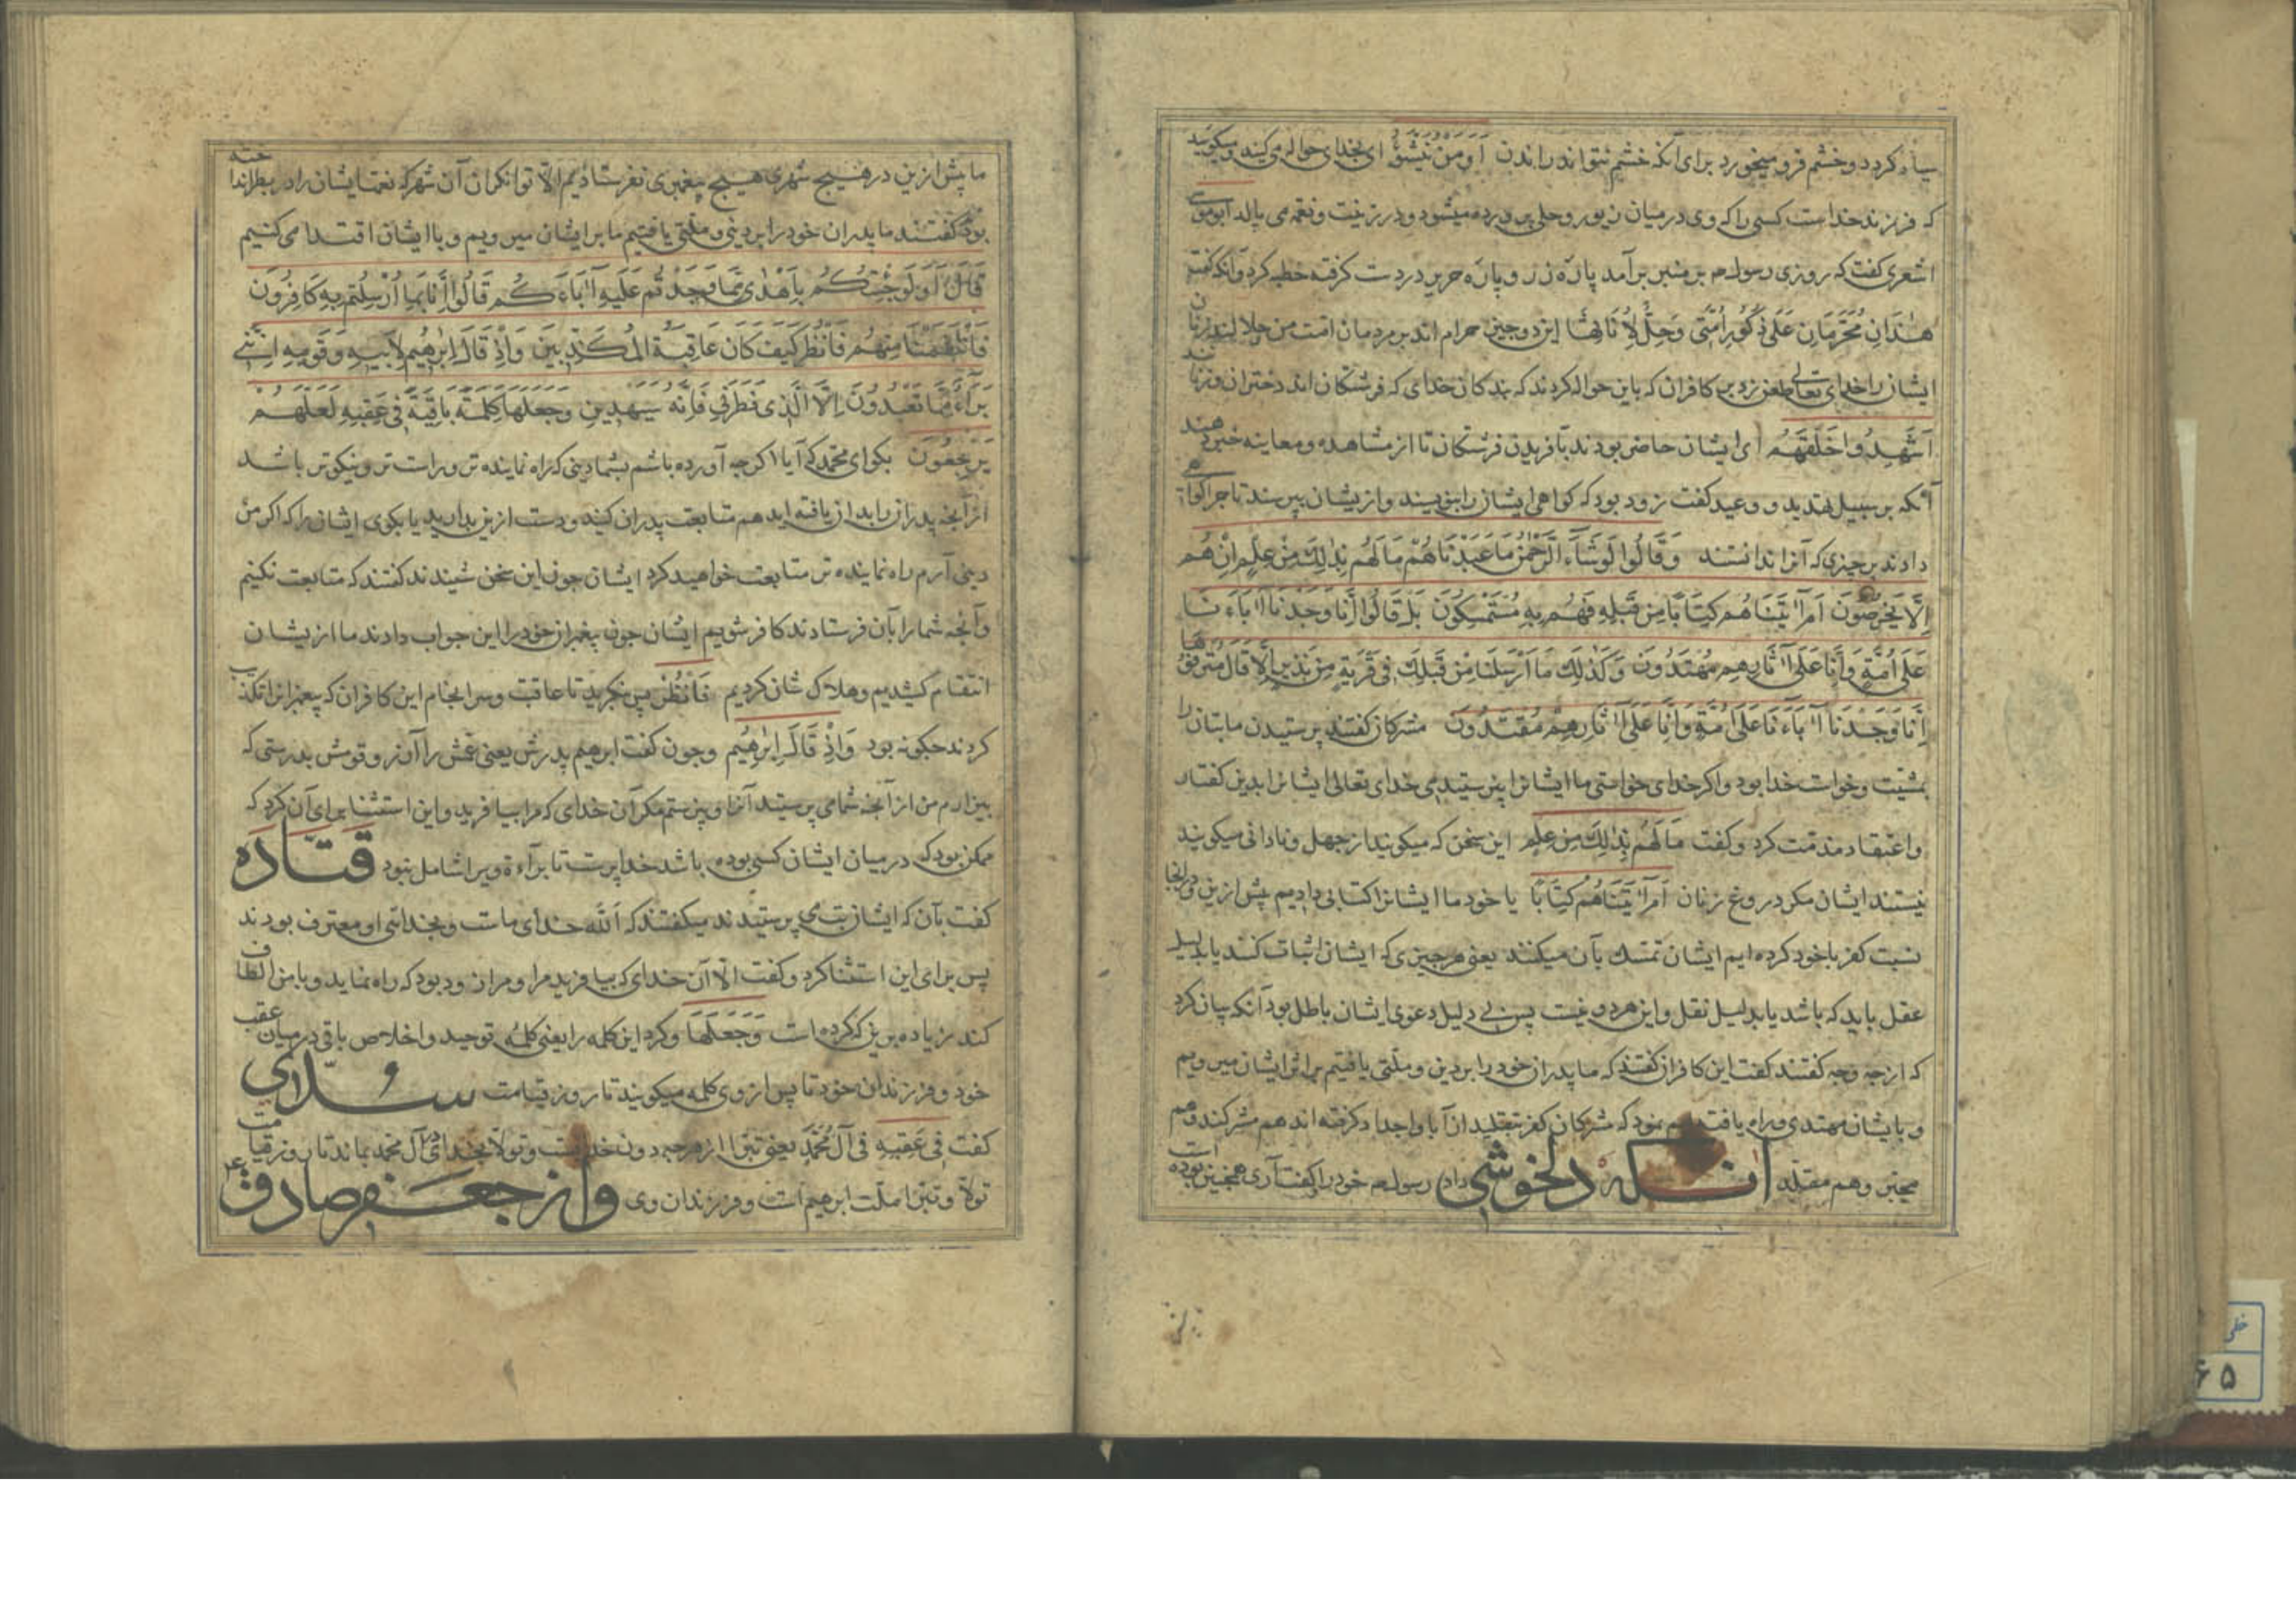 سیاه کردد و خشم فرو میخورد برای آنکه خشم نتواند راندن اَوَمَنْ یُنَشَّؤُ ای بخدای حواله می‌کنید و میکویید
که فرزند خداست کسی را که وی در میان زیور و حلی پرورده میشود و در زینت و نعمه می بالد ابوموسی
اشعری کفت که روزی رسول م بر منبر برآمد پارهٔ زر و پارهٔ حریر در دست کرفته خطبه کرد و آنکه کفت
هٰذَانِ مُحَرَّمَانِ عَلَی ذُکُورِ اُمَّتی وَحِلٌّ لِاُنَاثِهَا این دو چیز حرام اند بر مردمان امت من حلالند زنان
ایشان را خدای تعالی طعن زد بر کافران که باین حواله کردند که بندکان خدای که فرشتکان اند دختران وزنانند
اَشَهِدُوا خَلْقَهُمْ ای ایشان حاضر بودند بآفریدن فرشتکان تا از مشاهده و معاینه خبر دهند
آنکه بر سبیل تهدید و وعید کفت زود بود که کواهی ایشان را بنویسند و از یشان بپرسند تا چرا کواهی
دادند بر چیزی که آنرا ندانستند وَقَالُوا لَوْ شَاءَ الرَّحْمٰنُ مَا عَبَدْنَاهُمْ مَا لَهُمْ بِذٰلِكَ مِنْ عِلْمٍ اِنْ هُمْ
اِلَّا یَخْرُصُونَ اَمْ آتَیْنَاهُمْ کِتَابًا مِن قَبْلِهِ فَهُمْ بِهِ مُسْتَمْسِکُونَ بَلْ قَالُوا اِنَّا وَجَدْنَا آبَاءَنَا
عَلَی اُمَّةٍ وَاِنَّا عَلَی آثَارِهِمْ مُهْتَدُونَ وَکَذٰلِكَ مَا اَرْسَلْنَا مِنْ قَبْلِكَ فِی قَرْیَةٍ مِنْ نَذِیرٍ اِلَّا قَالَ مُتْرَفُوهَا
اِنَّا وَجَدْنَا آبَاءَنَا عَلَی اُمَّةٍ وَاِنَّا عَلَی آثَارِهِمْ مُقْتَدُونَ مشرکان کفتند پرستیدن ما بتان را
بمشیّت و خواست خدا بود و اکر خدای خواستی ما ایشانرا نپرستیدیمی خدای تعالی ایشانرا بدین کفتار
و اعتقاد مذمّت کرد و کفت مَا لَهُمْ بِذٰلِكَ مِنْ عِلْمٍ این سخن که میکویند از جهل و نادانی میکویند
نیستند ایشان مکر دروغ زنان اَمْ آتَیْنَاهُمْ کِتَابًا یا خود ما ایشانرا کتابی دادیم پیش ازین و در آنجا
نسبت کفر با خود کرده ایم ایشان تمسّك بآن میکنند یعنی هر چیزی که ایشان اثبات کنند یا بدلیل
عقل باید که باشد یا بدلیل نقل و این هر دو نیست پس بی دلیل دعوی ایشان باطل بود آنکه بیان کرد
که از چه وجه کفتند کفت این کافران کفتند که ما پدران خود را بر دین و ملّتی یافتیم بر اثر ایشان میرویم
و بایشان مهتدی و راه یافته‌ایم نمود که مشرکان کفر بتقلید از آبا و اجداد کرفته اند هم مشرکند و هم
مجبّر و هم مقلّد آنکه دلخوشی داد رسول م خود را کفت آری همچنین بوده است
ما پیش ازین در هیچ شهری هیچ پیغمبری نفرستادیم الّا توانکران آن شهر که نعمتها ایشان را در بطر انداخته
بود کفتند ما پدران خود را بر دینی و ملّتی یافتیم ما بر ایشان میرویم و با ایشان اقتدا می کنیم
قَالَ اَوَلَوْ جِئْتُکُمْ بِاَهْدٰی مِمَّا وَجَدْتُمْ عَلَیْهِ آبَاءَکُمْ قَالُوا اِنَّا بِمَا اُرْسِلْتُمْ بِهِ کَافِرُونَ
فَانْتَقَمْنَا مِنْهُمْ فَانْظُرْ کَیْفَ کَانَ عَاقِبَةُ الْمُکَذِّبِینَ وَاِذْ قَالَ اِبْرٰهِیمُ لِاَبِیهِ وَقَوْمِهِ اِنَّنِی
بَرَاءٌ مِمَّا تَعْبُدُونَ اِلَّا الَّذِی فَطَرَنِی فَاِنَّهُ سَیَهْدِینِ وَجَعَلَهَا کَلِمَةً بَاقِیَةً فِی عَقِبِهِ لَعَلَّهُمْ
یَرْجِعُونَ بکو ای محمّد که آیا اکر چه آورده باشم بشما دینی که راه نماینده تر و راست تر و نیکوتر باشد
از آنچه پدران را بدان یافته اید هم متابعت پدران کنید و دست ازین بدارید یا بکوی ایشان را که اکر من
دینی آرم راه نماینده تر متابعت خواهید کرد ایشان چون این سخن شنیدند کفتند که متابعت نکنیم
و آنچه شما را بآن فرستادند کافر شویم ایشان چون پیغمبران خود را این جواب دادند ما ازیشان
انتقام کشیدیم و هلاک شان کردیم فَانْظُرْ پس بنکرید تا عاقبت و سرانجام این کافران که پیغمبرانرا تکذیب
کردند چکونه بود وَاِذْ قَالَ اِبْرٰهِیمُ و چون کفت ابرهیم پدرش یعنی عمّش را آزر و قومش بدرستی که
بیزارم من از آنچه شما می پرستید آنرا و نپرستم مکر آن خدای که مرا بیافرید و این استثنا برای آن کرد که
ممکن بود که در میان ایشان کسی بوده باشد خداپرست تا براءة ویرا شامل نبود قتاده
کفت بآن که ایشان بت می پرستیدند میکفتند که اَللّٰه خدای ماست و بخدائی او معترف بودند
پس برای این استثنا کرد و کفت الّا آن خدای که بیافرید مرا و مرا زود بود که راه نماید و با من الطاف
کند زیاده برین که کرده است وَجَعَلَهَا و کرد این کلمه را یعنی کلمهٔ توحید و اخلاص باقی در میان عقب
خود و فرزندان خود تا پس از وی کلمه میکویند تا روز قیامت سُدّی
کفت فی عَقِبِهِ فی آلِ مُحَمَّدٍ یعنی تبرّا از هرچه دون خداست و تولّا بخدای در آل محمد بماند تا روز قیامت
تولّا و تبرّا ملّت ابرهیم است و فرزندان وی و از جعفر صادق ع
خطی
۶۵